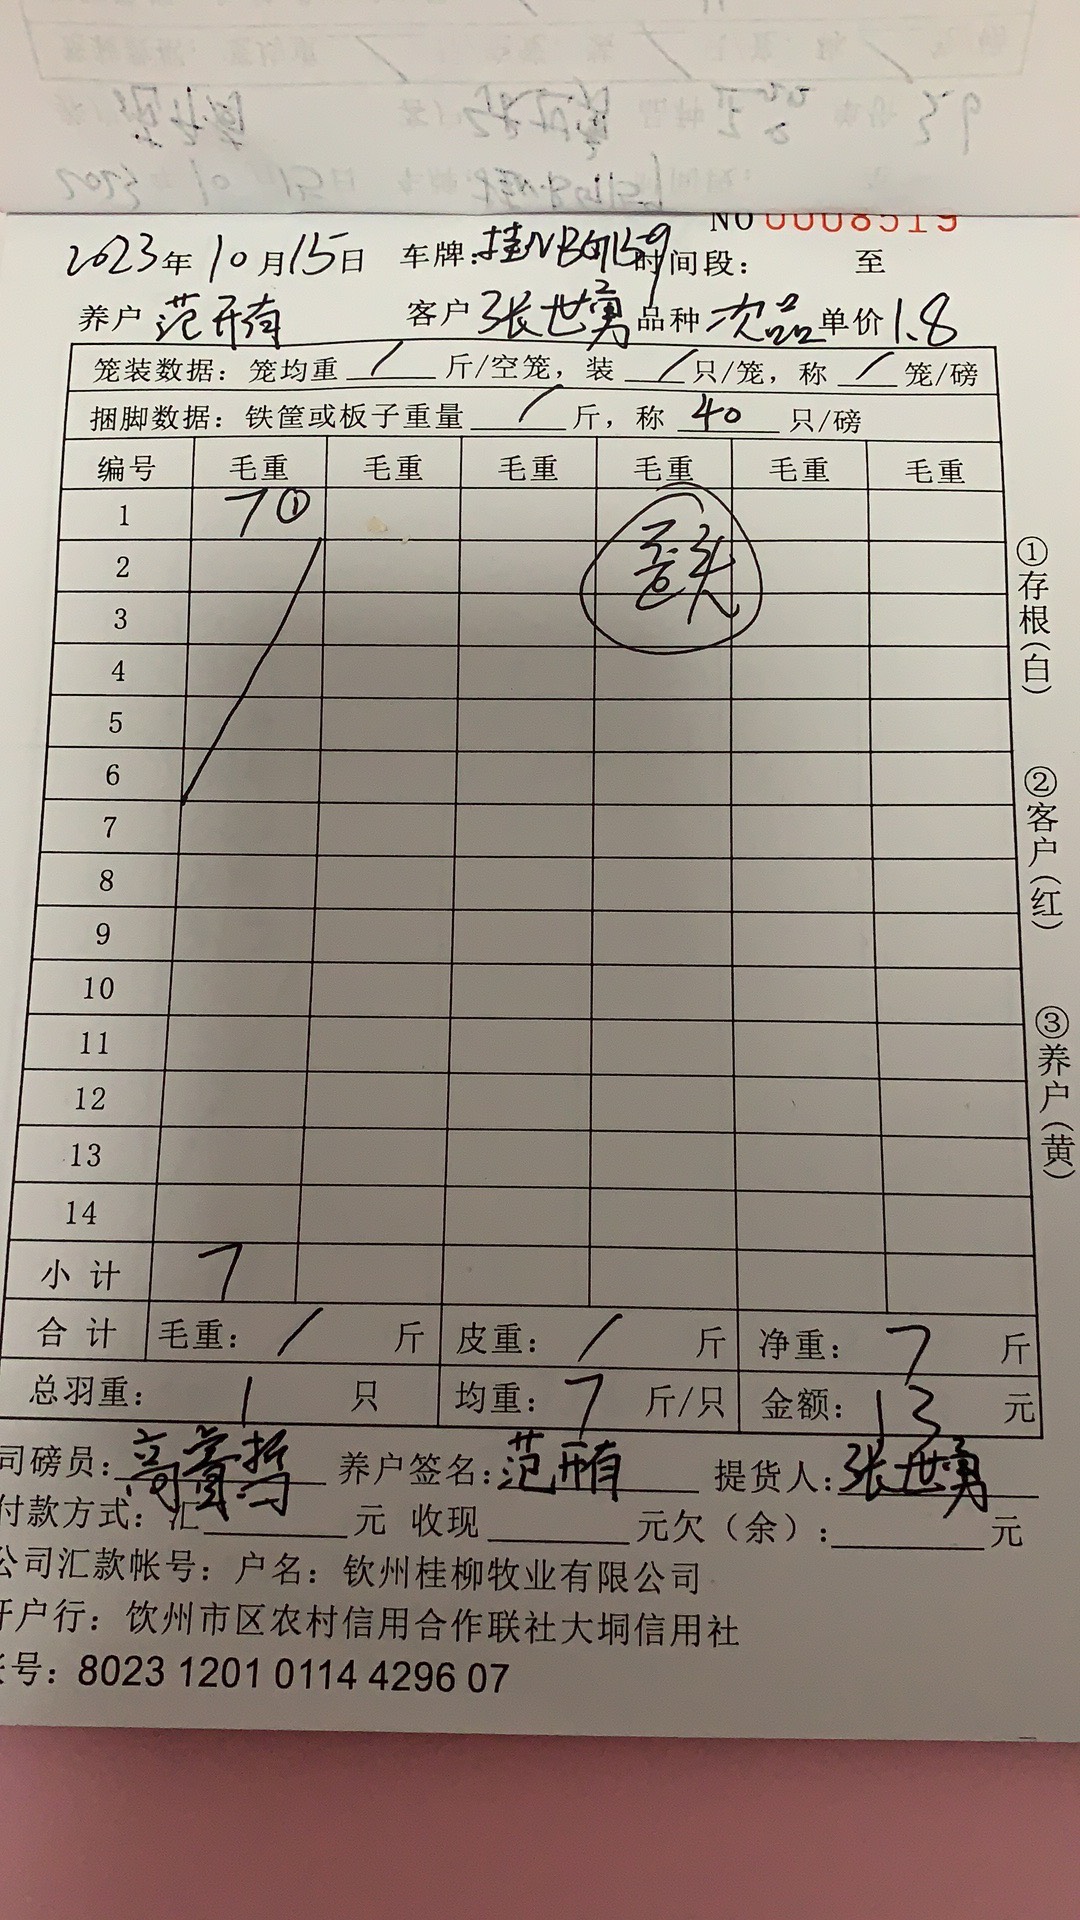 NO 0008519
2023年10月15日 车牌：桂NBG159 时间段： 至
养户 范开有 客户 张世勇 品种 次品 单价 1.8
笼装数据：笼均重 / 斤/空笼，装 / 只/笼，称 / 笼/磅
捆脚数据：铁筐或板子重量 / 斤，称 40 只/磅
编号 毛重 毛重 毛重 毛重 毛重 毛重
1 7①
2
3
4
5
6
7
8
9
10
11
12
13
14
小计 7
合计 毛重： / 斤 皮重： / 斤 净重： 7 斤
总羽重： 1 只 均重： 7 斤/只 金额： 13 元
司磅员： 养户签名：范开有 提货人：张世勇
付款方式：汇 元 收现 元欠（余）： 元
公司汇款帐号：户名：钦州桂柳牧业有限公司
开户行：钦州市区农村信用合作联社大垌信用社
账号：8023 1201 0114 4296 07
①存根（白）
②客户（红）
③养户（黄）